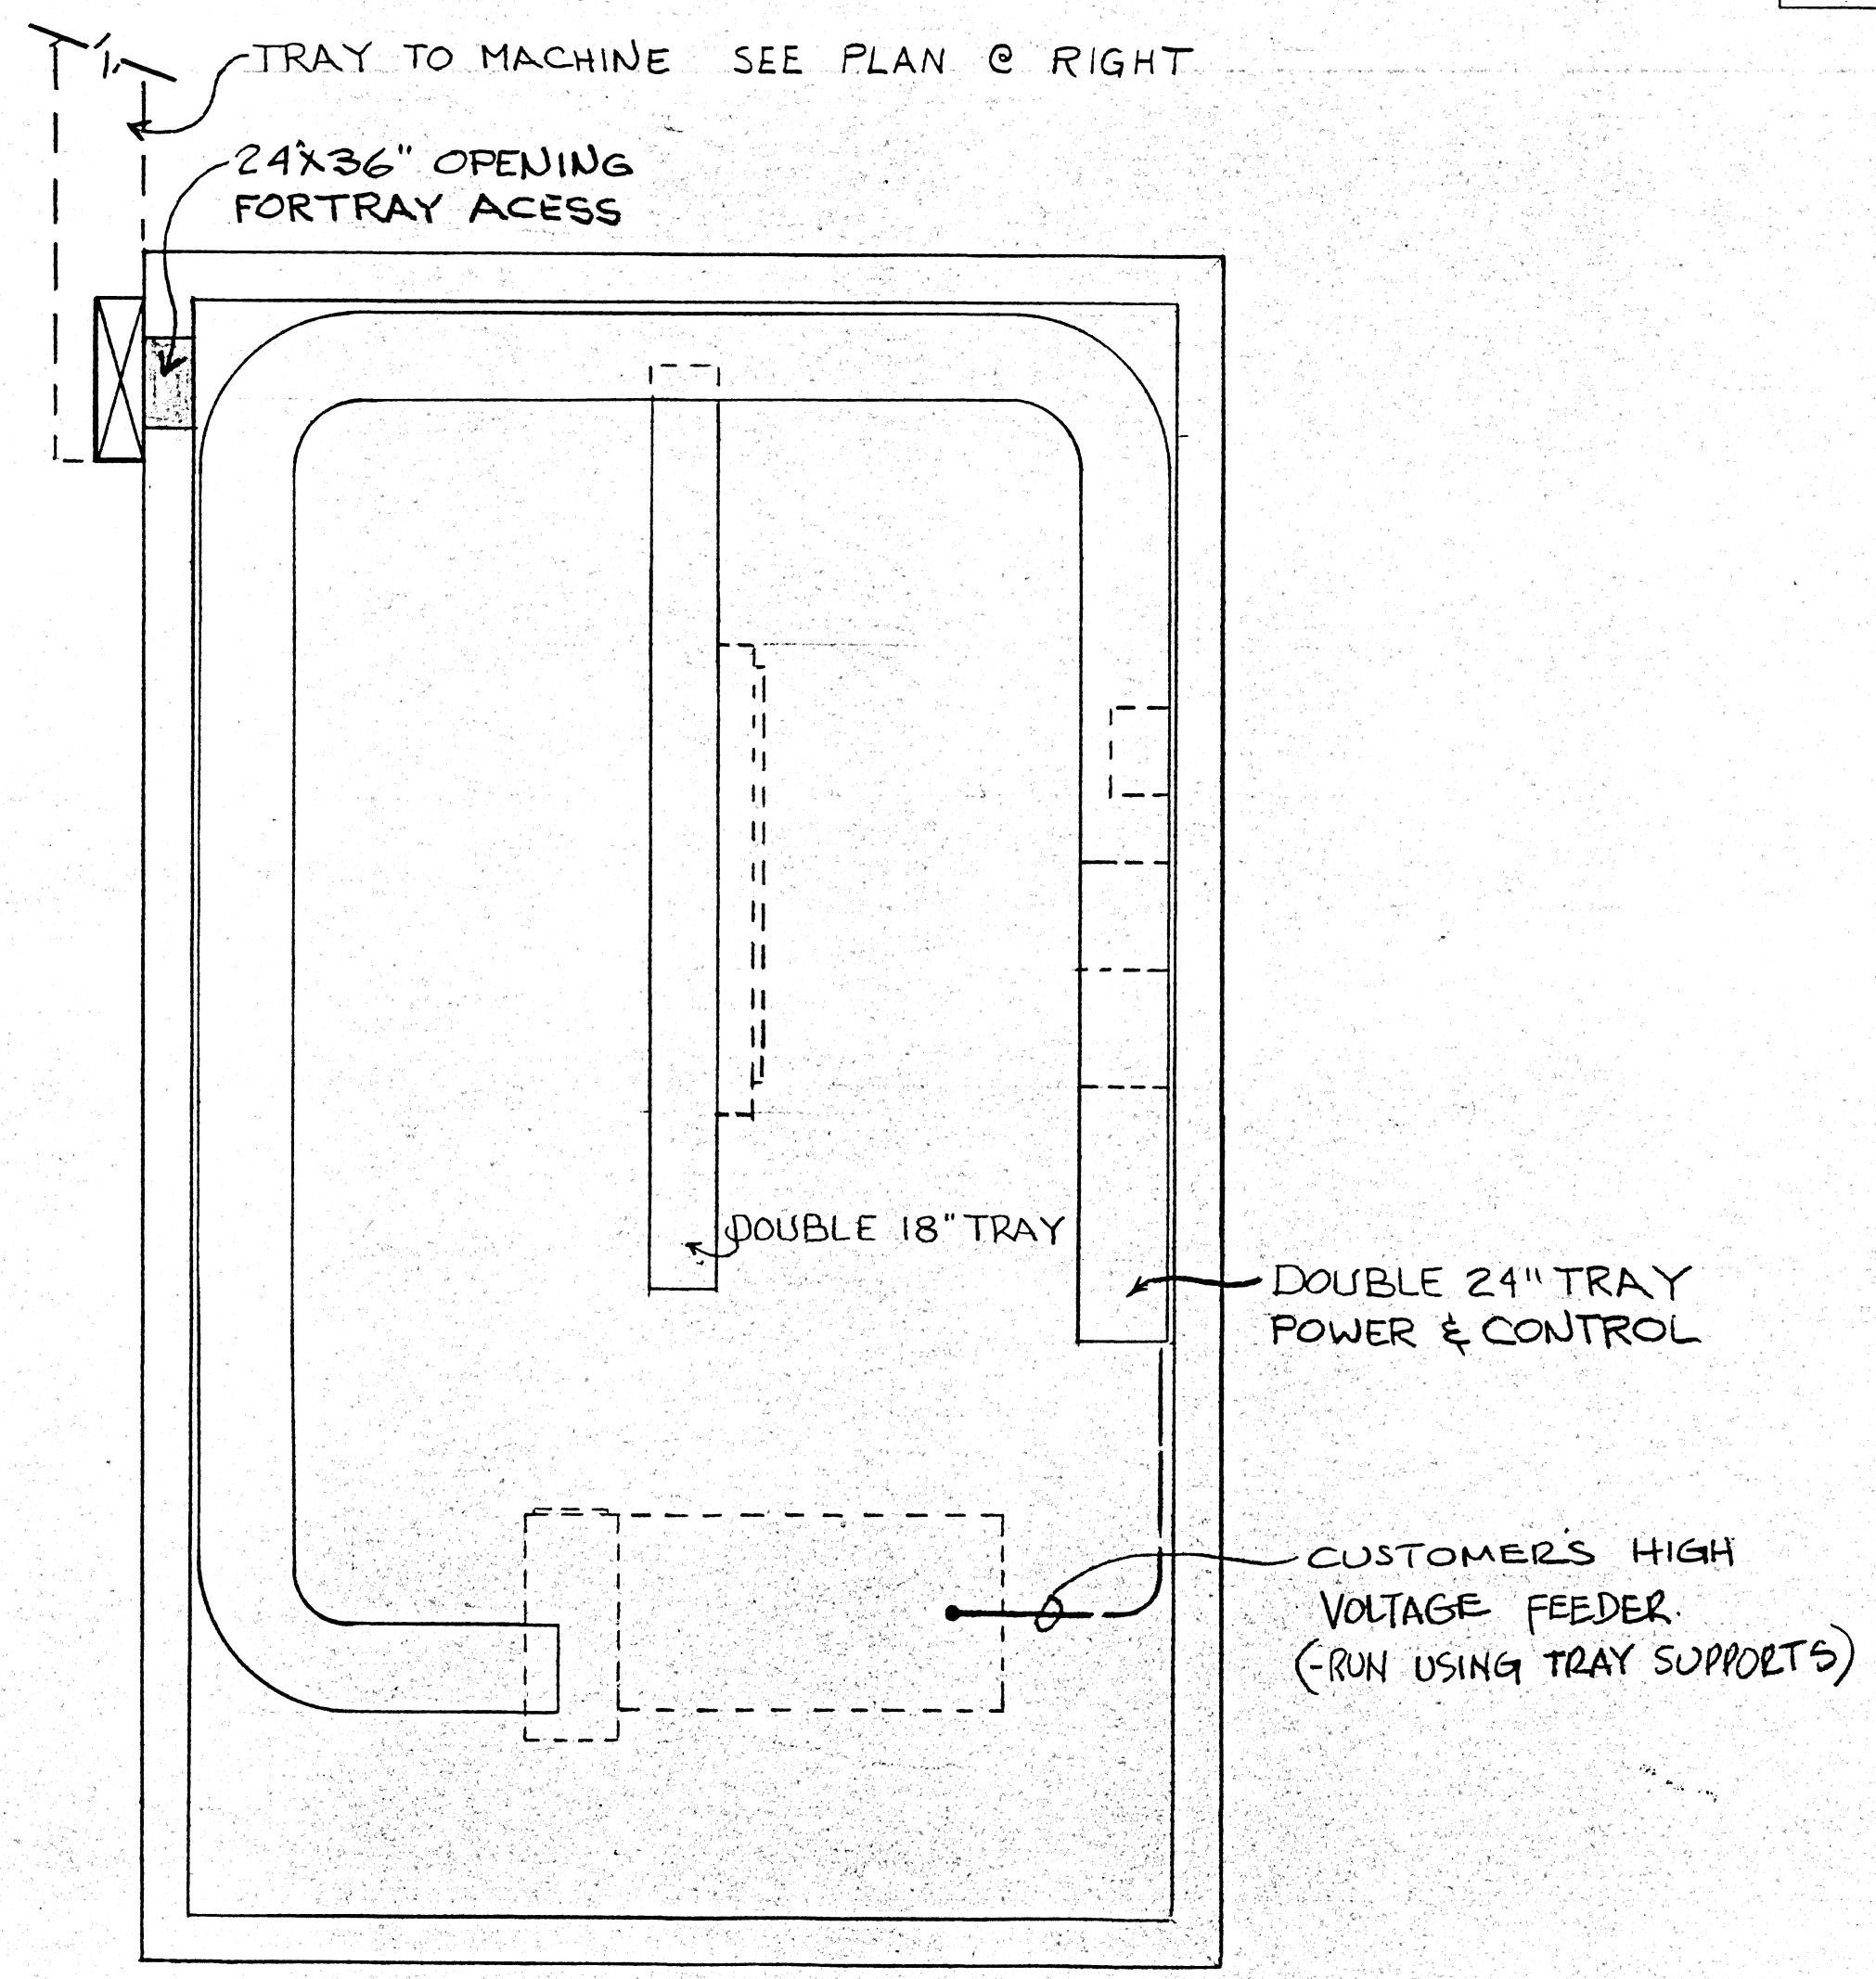 TRAY TO MACHINE SEE PLAN @ RIGHT
24"X36" OPENING
FORTRAY ACESS
DOUBLE 18" TRAY
DOUBLE 24" TRAY
POWER & CONTROL
CUSTOMER'S HIGH
VOLTAGE FEEDER.
(-RUN USING TRAY SUPPORTS)